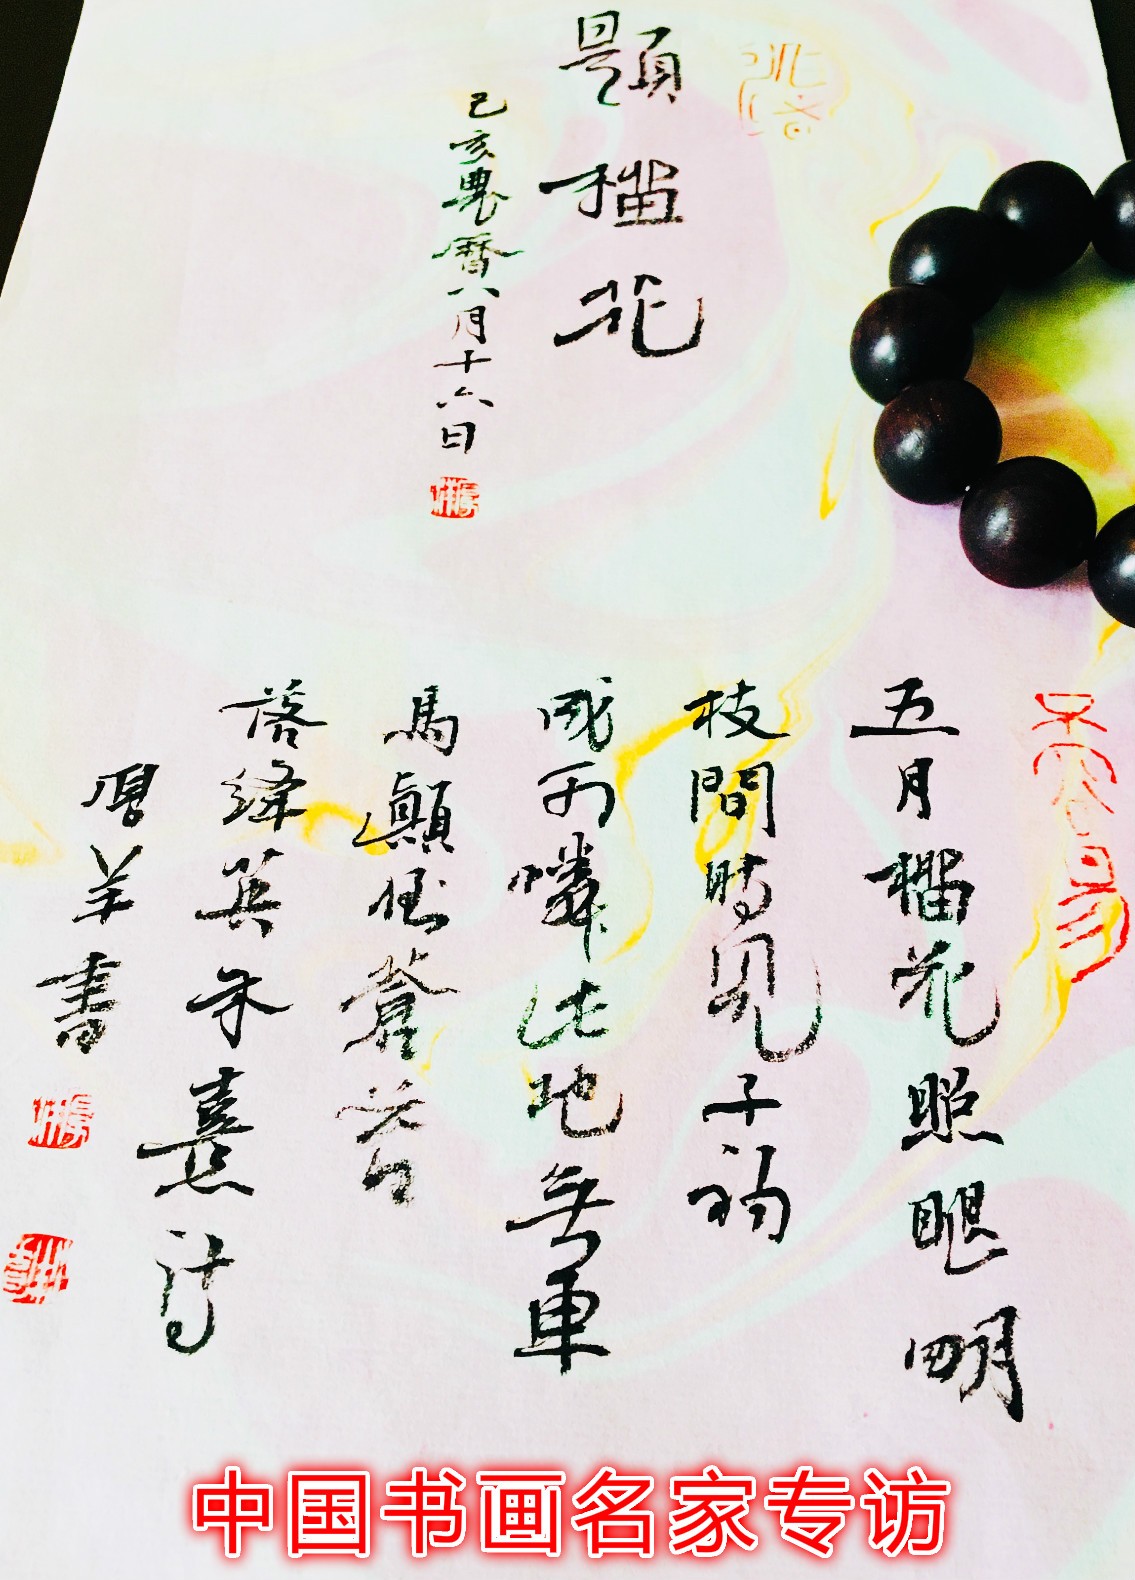 題榴花
己亥農曆八月十六日
五月榴花照眼明
枝間時見子初
成可憐此地無車
馬顛倒蒼苔
落絳英朱熹詩
羊書
中国书画名家专访